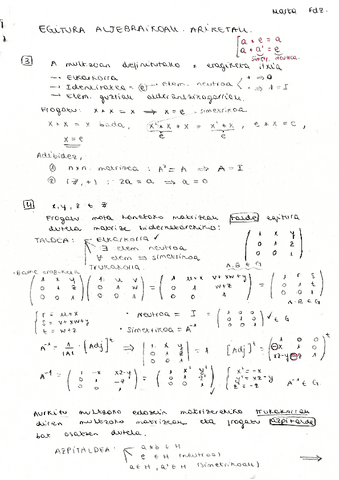 Maite Fdz.
EGITURA ALJEBRAIKOAK. ARIKETAK.
a * e = a
a * a' = e
3 A multzoan definitutako * eragiketa itxia
— Elkarkorra
— Identitatea = e → elem. neutroa + → 0 · → 1 = I
— Elem. guztiak alderantzikagarriak
Frogatu: x * x = x → x = e. simetrikoa
x * x = x bada, x' * x * x = x' * x, e * x = e,
x = e
Adibidez,
① n × n matrizea : A² = A ⇒ A = I
② (Z, +) : 2a = a ⇒ a = 0
4 x, y, z ∈ Z
Frogatu mota honetako matrizeak talde egitura
dutela matrize biderketarekiko:
( 1 x y 0 1 z 0 0 1 )
TALDEA: Elkarkorra ✓
∃ elem neutroa
∀ elem ⇒ simetrikoa
Trukakorra
A·B ∈ G
( 1 x y 0 1 z 0 0 1 ) ( 1 u v 0 1 w 0 0 1 ) = ( 1 u+x v+xw+y 0 1 w+z 0 0 1 ) = ( 1 r s 0 1 t 0 0 1 )
A·B ∈ G
r = u+x
s = v+xw+y
t = w+z
· Neutroa = I = ( 1 0 0 0 1 0 0 0 1 ) ∈ G
· Simetrikoa = A⁻¹
A⁻¹ = 1/|A| · [Adj]ᵗ ⇒ | 1 x y 0 1 z 0 0 1 | = 1
A⁻¹ = ( 1 -x xz-y 0 1 -z 0 0 1 ) = ( 1 x' y' 0 1 z' 0 0 1 )
x' = -x
y' = xz-y
z' = -z
A⁻¹ ∈ G
Aurkitu multzoko edozein matrizerekiko trukakorrak
diren multzoko matrizeak eta frogatu azpitalde
bat osatzen dutela.
AZPITALDEA: a * b ∈ H
e ∈ H (neutroa)
a ∈ H, a' ∈ H (simetrikoak)